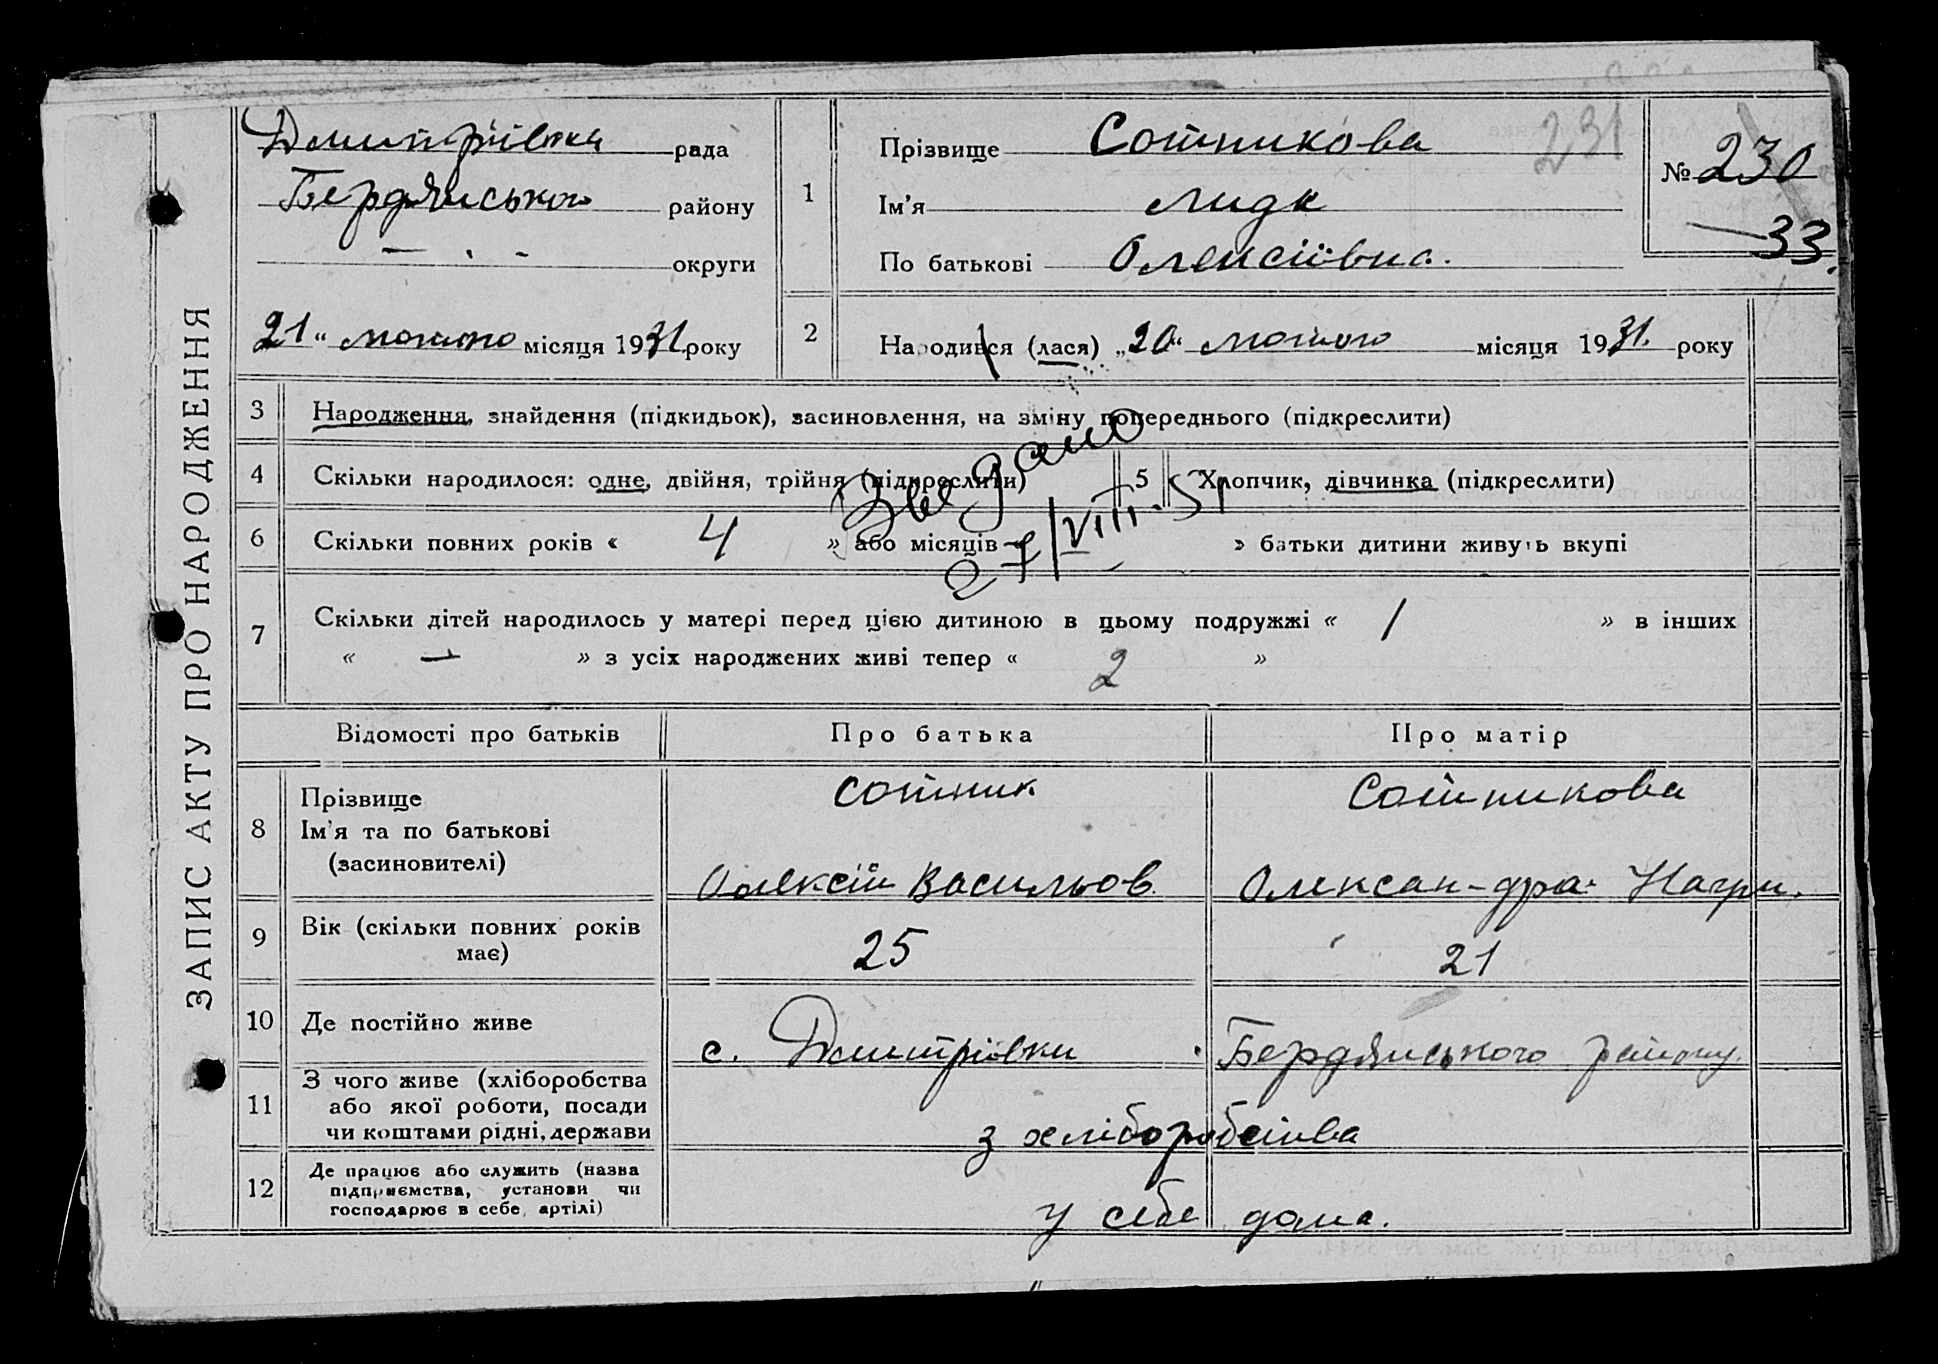 ЗАПИС АКТУ ПРО НАРОДЖЕННЯ
Дмитрівки рада
Бердянського району
округи
21 " лютого місяця 1931 року
1
Прізвище Сотникова
Ім'я Лида
По батькові Олексіївна.
231
№ 230
33.
2
Народився (лася) „20" лютого місяця 1931. року
3 Народження, знайдення (підкидьок), засиновлення, на зміну попереднього (підкреслити)
4 Скільки народилося: одне, двійня, трійня (підкреслити) 5 Хлопчик, дівчинка (підкреслити)
27/VIII-51
6 Скільки повних років « 4 » або місяців » батьки дитини живуть вкупі
7 Скільки дітей народилось у матері перед цією дитиною в цьому подружжі « 1 » в інших
« — » з усіх народжених живі тепер « 2 »
Відомості про батьків Про батька Про матір
8 Прізвище Сотник Сотникова
Ім'я та по батькові
(засиновителі) Олексій Васильов. Олексан-дра
9 Вік (скільки повних років має) 25 21
10 Де постійно живе с. Дмитрівки Бердянського району.
11 З чого живе (хліборобства
або якої роботи, посади
чи коштами рідні, держави з хліборобства
12 Де працює або служить (назва
підприємства, установи чи
господарює в себе, артілі) у себе дома.